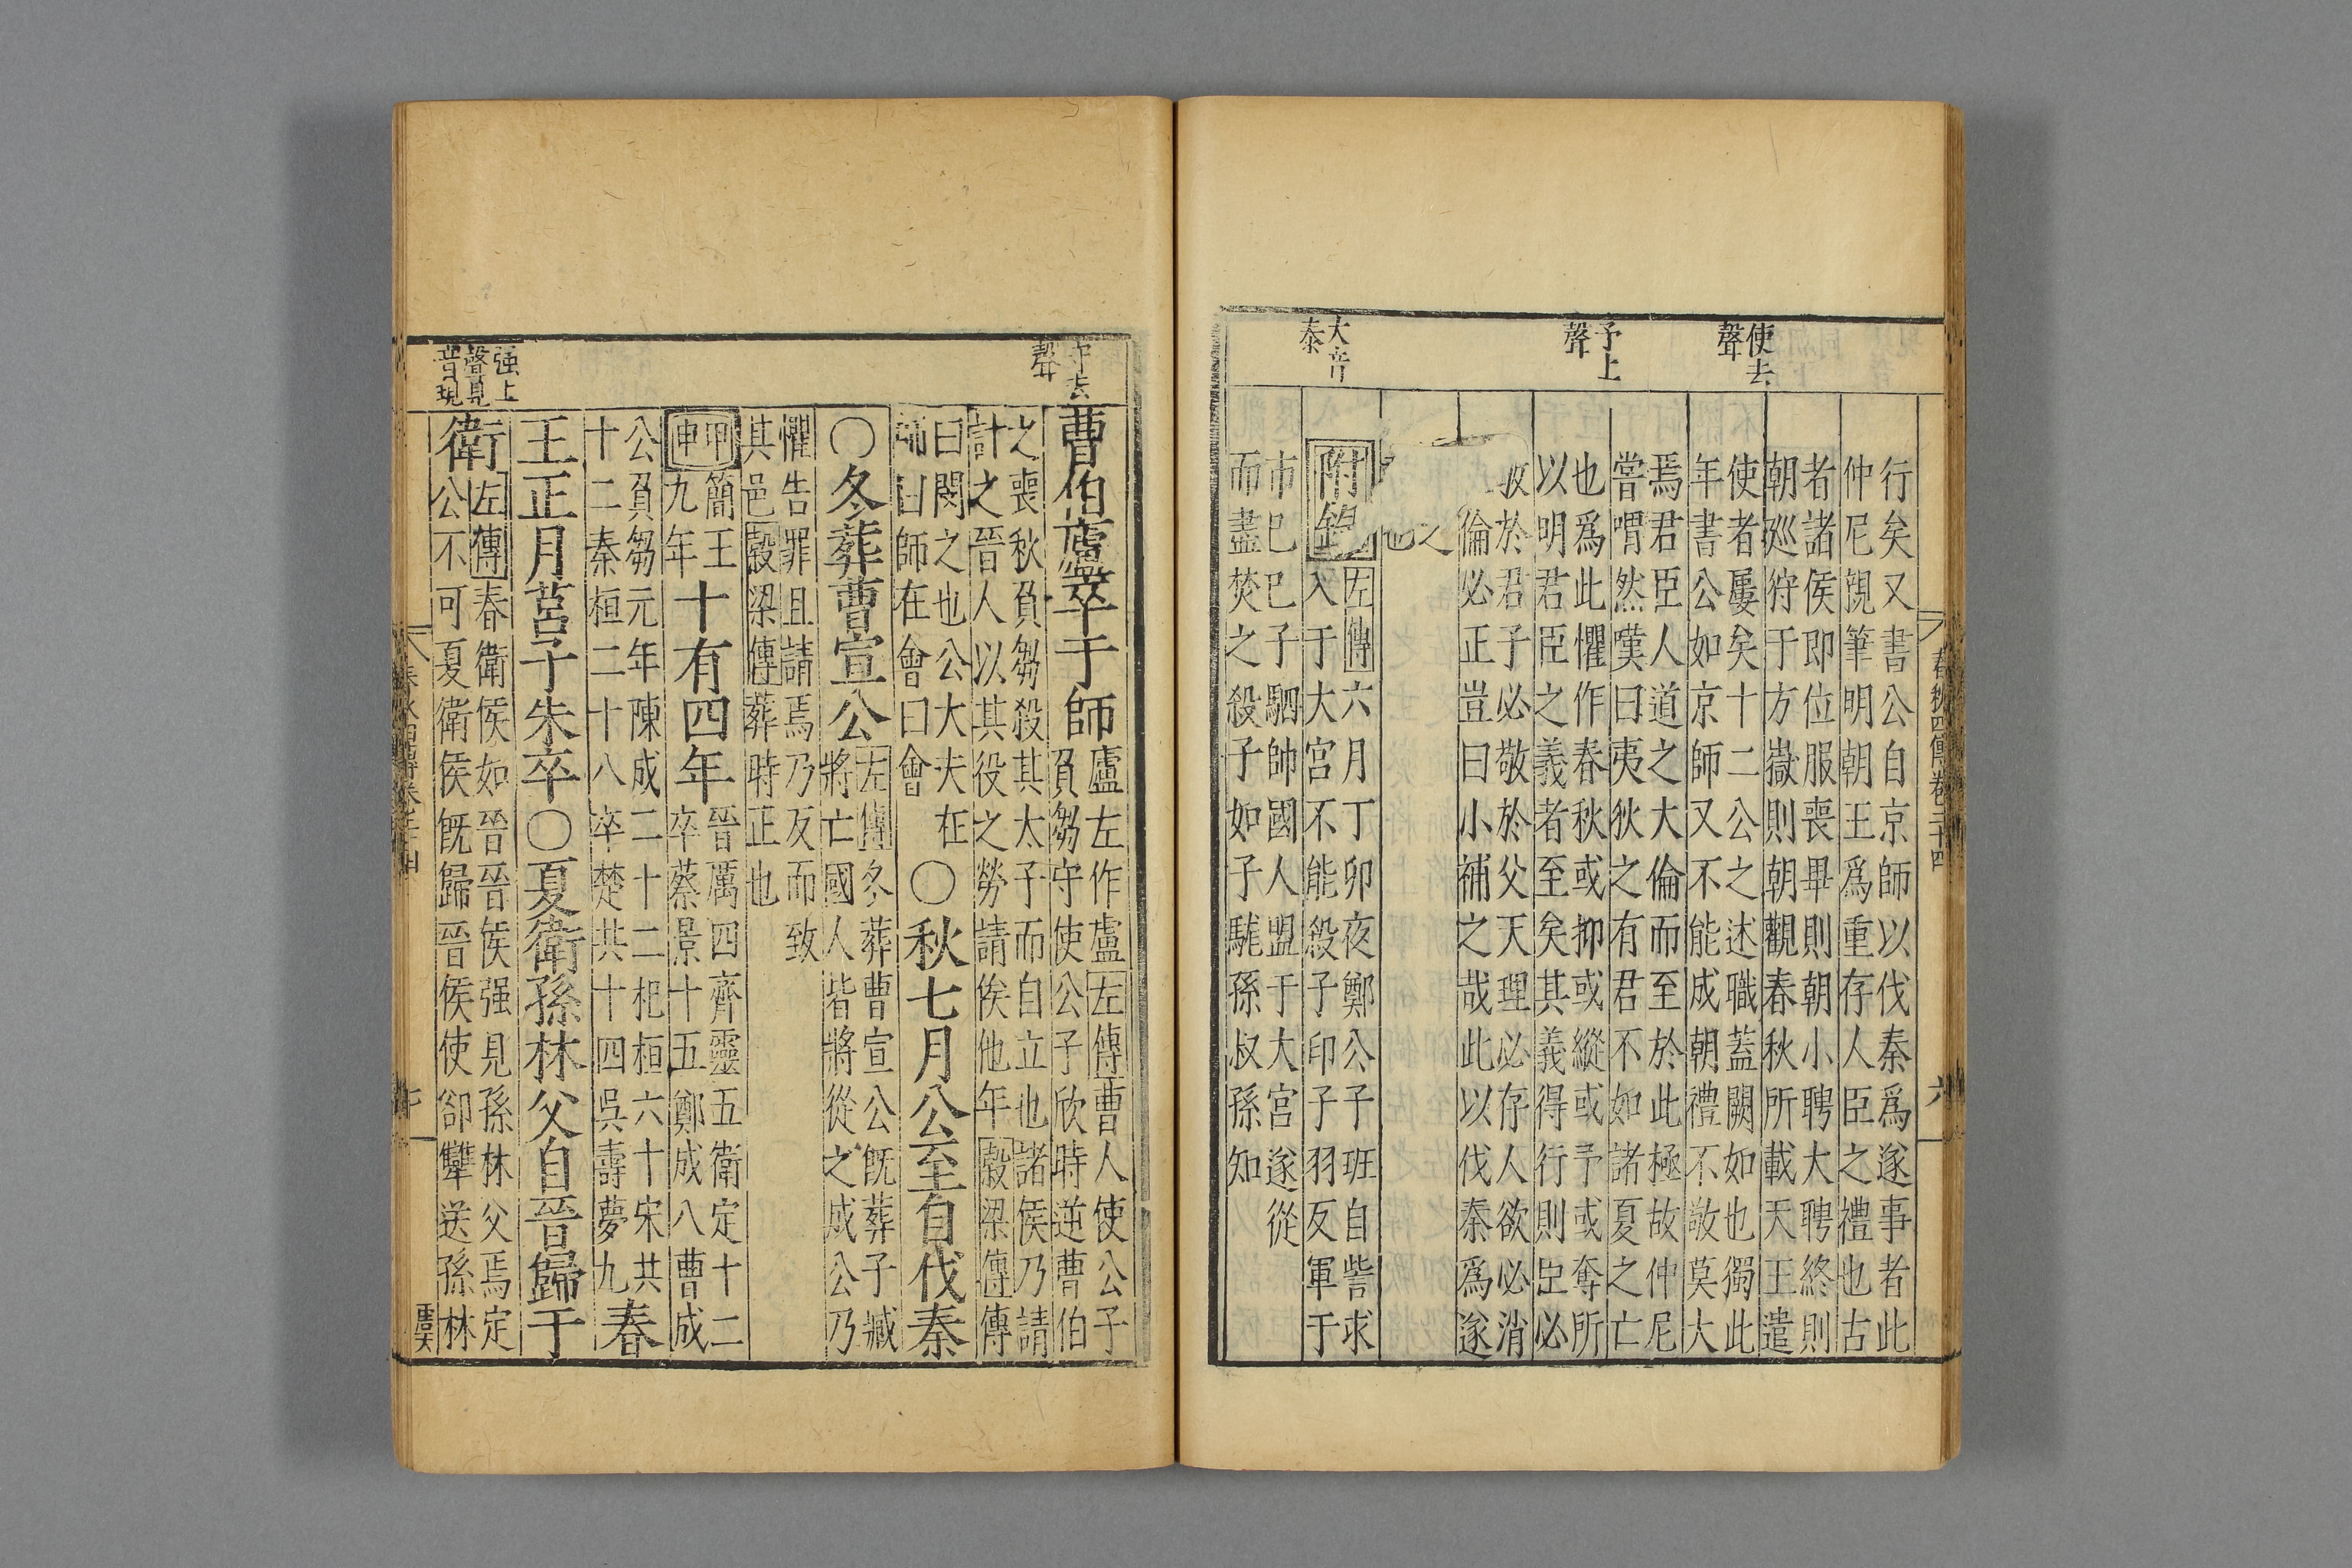 使去
聲
予上
聲
大音
泰
行矣又書公自京師以伐秦爲遂事者此
仲尼親筆明朝王爲重存人臣之禮也古
者諸侯即位服喪畢則朝小聘大聘終則
朝廵狩于方嶽則朝觀春秋所載天王遣
使者屢矣十二公之述職蓋闕如也獨此
年書公如京師又不能成朝禮不敬莫大
焉君臣人道之大倫而至於此極故仲尼
嘗喟然嘆曰夷狄之有君不如諸夏之亡
也爲此懼作春秋或抑或縱或予或奪所
以明君臣之義者至矣其義得行則臣必
敬於君子必敬於父天理必存人欲必消
倫必正豈曰小補之哉此以伐秦爲遂
之
也
附錄
左傳六月丁卯夜鄭公子班自訾求
入于大宮不能殺子印子羽反軍于
市巳巳子駟帥國人盟于大宮遂從
而盡焚之殺子如子駹孫叔孫知
春秋四傳卷二十四
六
守去
聲
强上
聲見
音現
曹伯廬卒于師
廬左作盧左傳曹人使公子
負芻守使公子欣時逆曹伯
之喪秋負芻殺其太子而自立也諸侯乃請
討之晉人以其役之勞請俟他年穀梁傳傳
曰閔之也公大夫在
師曰師在會曰會
○秋七月公至自伐秦
○冬葬曹宣公
左傳冬葬曹宣公旣葬子臧
將亡國人皆將從之成公乃
懼告罪且請焉乃反而致
其邑穀梁傳葬時正也
甲申
簡王
九年
十有四年
晉厲四齊靈五衛定十二
卒蔡景十五鄭成八曹成
公負芻元年陳成二十二杞桓六十宋共
十二秦桓二十八卒楚共十四吳壽夢九
春
王正月莒子朱卒○夏衛孫林父自晉歸于
衛
左傳春衛侯如晉晉侯强見孫林父焉定
公不可夏衛侯旣歸晉侯使郤犫送孫林
春秋四傳卷二十四